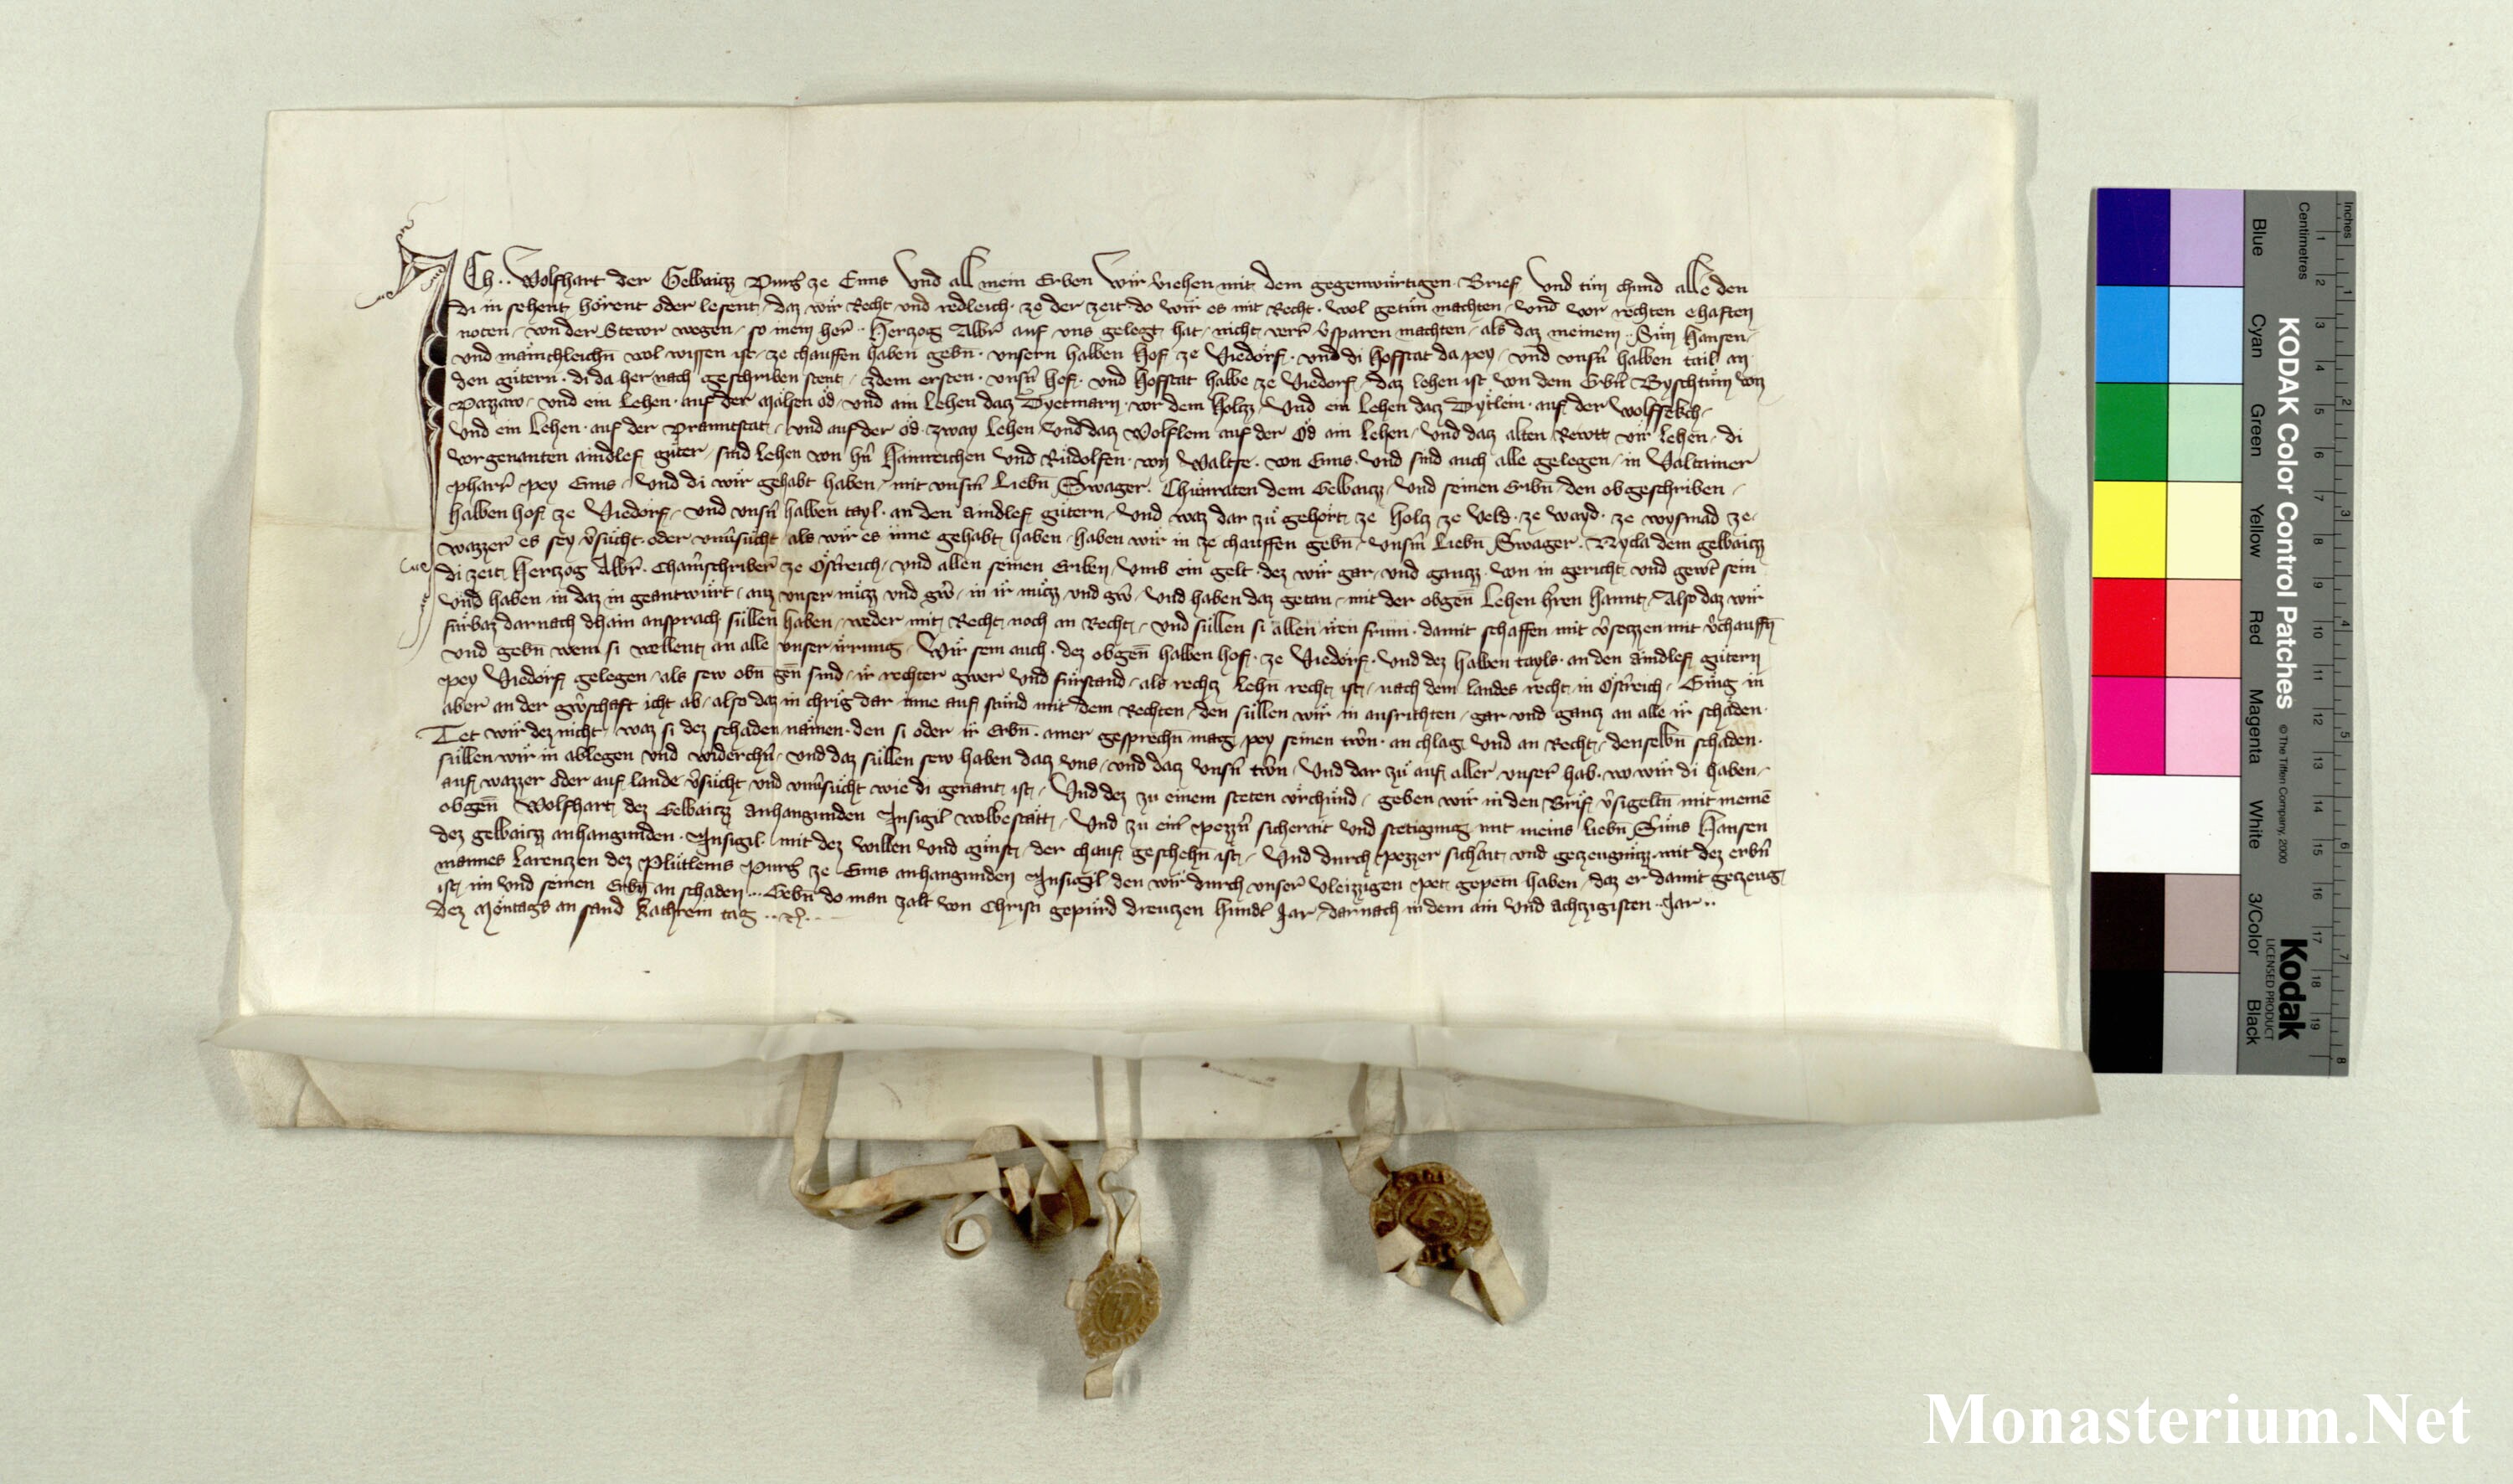 ICh .. Wolfhart der Gelbaicz Purg̃ ze Enns Vnd all mein Erben Wir v̓iehen mit dem gegenwůrtigen Brief Vnd tůn chund alle den
di in sehent hörent oder lesent daz wir Recht vnd redleich ze der zeit do wir es mit Recht wol getůn machten vnd vor rechten ehaften
noten von der Stewr wegen so mein her̃ .. Herczog Albr̃ auf vns gelegt hat nicht verr̃ v̓sparen machten als daz meinem Sůn Hansen
vnd mainchleichn̄ wol wissen ist ze chauffen haben gebn̄ vnsern halben Hof ze Niedorf vnd di Hofstat da pey vnd vnsn̓ halben tail an
den gůtern di da her nach geschriben stent zdem ersten vnsn̓ hof vnd hofstat halbe ze Niedorf daz lehen ist von dem Erbn̓ Byschtům von
Pazzaw vnd ein lehen auf der Mälsen öd vnd ain lehen dacz Dyetmarn vor dem holcz Vnd ein lehen dacz Dytlein auf der Wolffekch
Vnd ein Lehen auf der Pranntstat vnd auf der öd zway lehen Vnd dacz Wolflein auf der Öd ain lehen vnd dacz alten Rewtt vir lehen di
vorgenanten aindlef gůter sind lehen von hn̓ Hainreichen vnd Rudolfen von Waltse von Enns vnd sind auch alle gelegen in Valtainer
pharr̃ pey Enns Vnd di wir gehabt haben mit vnsm̓ Liebn̄ Swager Chunraten dem Gelbaicz vnd seinen Eribn̄ den obgeschriben
halben hof ze Niedorf vnd vnsn̓ halben tayl an den aindlef gůtern vnd waz dar zů gehört ze holcz ze veld ze wayd ze wysmad ze
wazzer̃ es sey v̓sůcht oder vnv̓sůcht als wir es inne gehabt haben haben wir in ze chauffen gebn̄ vnsm̓ Liebn̄ Swager Nycla dem gelbaicz
di zeit Herczog Albr̃ Cham̓schriber̃ ze Ost̓reich vnd allen seinen Eriben vmb ein gelt dez wir gar vnd gancz von in gericht vnd gewt̓ sein
vnd haben in daz in geantwůrt aus vnser nůcz vnd gw̓ in ir nůcz vnd gw̓ vnd haben daz getan mit der obgen̄ Lehen hr̓en hannt Also daz wir
fůrbaz darnach dhain ansprach sůllen haben weder mit Recht noch an Recht vnd sůllen si allen iren frum damit schaffen mit v̓seczen mit v̓chauffn̄
vnd gebn̄ wem si wellent an alle vnser irrung Wir sein auch dez obgen̄ halben hof ze Niedorf vnd dez halben tayls an den aindlef gůtern
pey Niedorf gelegen als sew obn̄ gen̄ sind ir rechter gwer vnd fůrstand als rechcz lehn̄ recht ist nach dem landes recht in Ost̓reich Gieng in
aber an der gw̓schaft icht ab also daz in chrig dar inne auf stůnd mit dem Rechten den sůllen wir in ausrichten gar vnd gancz an alle ir schaden
Tet wir dez nicht waz si dez schaden nämen den si oder ir Erbn̄ ainer gesprechn̄ mag pey seinen trw̓n an chlag vnd an Recht denselbn̄ schaden
sůllen wir in ablegen vnd widerchn̓ vnd daz sůllen sew haben dacz vns vnd dacz vnsn̓ trw̓n Vnd dar zů auf aller vnser̃ hab wo wir di haben
auf wazzer oder auf lande v̓sůcht vnd vnv̓sůcht wie di genant ist Vnd dez zu einem steten vrchůnd geben wir in den Brif v̓sigeltn̄ mit meinē
obgen̄ Wolfhart dez Gelbaicz anhangunden Insigil wolbestätt Vnd zu ein̓ pezzn̓ sicherait vnd stetigung mit meins liebn̄ Suns Hansen
dez gelbaicz anhangunden Insigil mit dez willen vnd gůnst der chauf geschehn̄ ist Vnd durch pezzer sich̓ait vnd geczeugnůcz mit dez erbn̓
mannes Larenczen dez Plůtleins Purg̃ ze Enns anhangunden Insigil den wir durch vnser̃ vleizzigen pet gepetn̄ haben daz er damit geczeug
ist im vnd seinen Erbn̄ an schaden .. Gebn̄ do man zalt von Christi gepůrd dreuczen hundt̓ Jar darnach in dem ain vnd achczigisten Jar ..
dez Mŏntags an sand Kathrein tag ..
KODAK Color Control Patches
© The Tiffen Company, 2000
Kodak
LICENSED PRODUCT
Inches
Centimetres
Blue
Cyan
Green
Yellow
Red
Magenta
White
3/Color
Black
1 2 3 4 5 6 7 8 9 10 11 12 13 14 15 16 17 18 19
1 2 3 4 5 6 7 8
Monasterium.Net